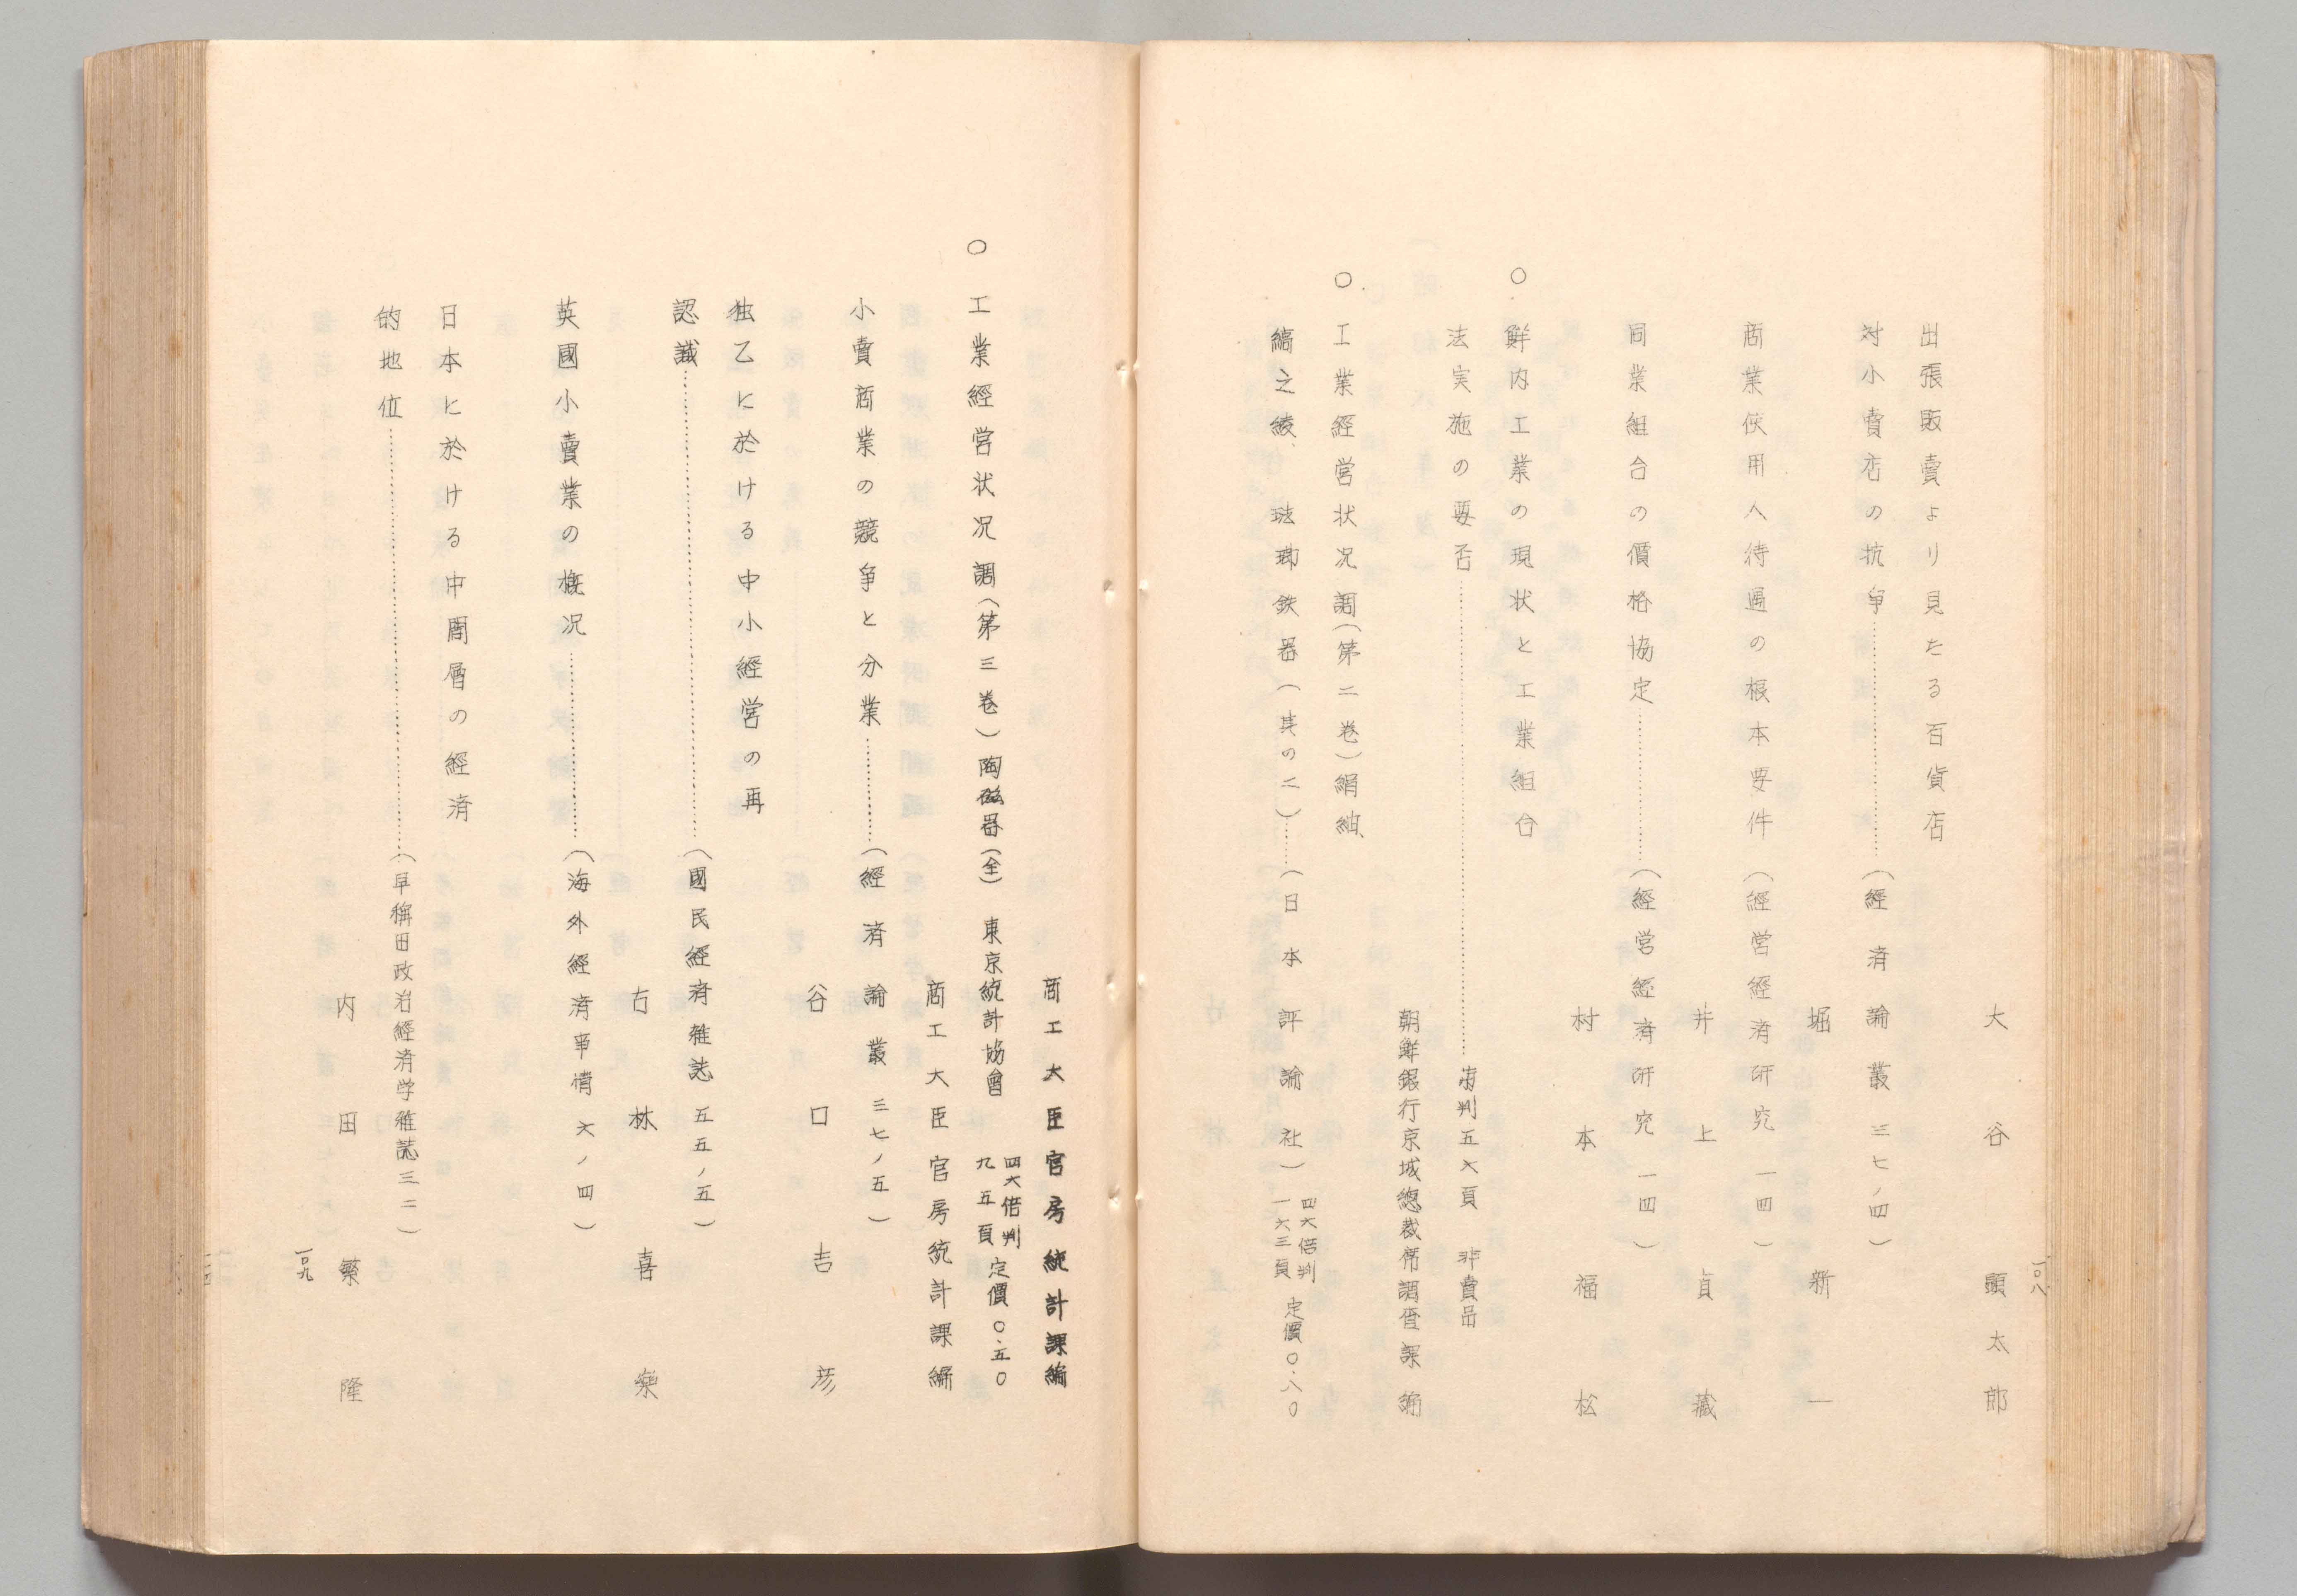 一〇八
大谷顕太郎
出張販賣より見たる百貨店
対小賣店の抗争……………(經済論叢 三七ノ四)
堀新一
商業使用人待遇の根本要件(經営經済研究 一四)
井上貞藏
同業組合の價格協定…………(經営經済研究 一四)
村本福松
〇 鮮内工業の現状と工業組合
法実施の要否……………………菊判五六頁 非賣品
朝鮮銀行京城總裁席調査課編
〇 工業經営状况調(第二卷)絹紬、
縞之綾、琺瑯鉄器(其の二)……(日本評論社)四六倍判 一六三頁 定價〇.八〇
商工大臣官房統計課編
〇 工業經営状况調(第三卷)陶磁器(全) 東京統計協會 四六倍判 九五頁 定價〇.五〇
商工大臣官房統計課編
小賣商業の競争と分業…………(經済論叢 三七ノ五)
谷口吉彦
独乙に於ける中小經営の再
認識……………………………(國民經済雑誌 五五ノ五)
古林喜樂
英國小賣業の概况……………(海外經済事情 六ノ四)
日本に於ける中間層の經済
的地位…………………………(早稲田政治經済学雑誌三二)
内田繁隆
一〇九